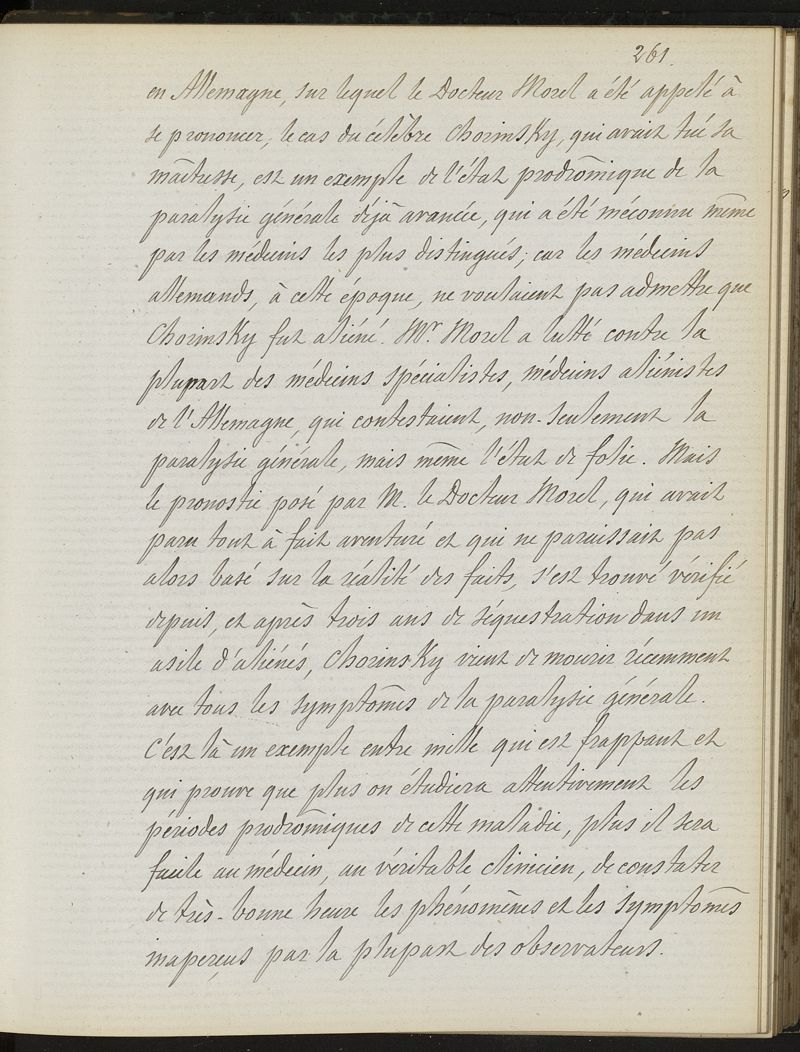 261.
en Allemagne, sur lequel le Docteur Morel a été appelé à
se prononcer, le cas du célèbre Chorinsky, qui avait tué sa
maîtresse, est un exemple de l'état prodrômique de la
paralysie générale déjà avancée, qui a été méconnu même
par les médecins les plus distingués; car les médecins
allemands, à cette époque, ne voulaient pas admettre que
Chorinsky fut aliéné. Mr. Morel a lutté contre la
plupart des médecins spécialistes, médecins aliénistes
de l'Allemagne, qui contestaient, non-seulement la
paralysie générale, mais même l'état de folie. Mais
le pronostic posé par M. le Docteur Morel, qui avait
paru tout à fait aventuré et qui ne paraissait pas
alors basé sur la réalité des faits, s'est trouvé vérifié
depuis, et après trois ans de séquestration dans un
asile d'aliénés, Chorinsky vient de mourir récemment
avec tous les symptômes de la paralysie générale.
C'est là un exemple entre mille qui est frappant et
qui prouve que plus on étudiera attentivement les
périodes prodrômiques de cette maladie, plus il sera
facile au médecin, au véritable clinicien, de constater
de très-bonne heure les phénomènes et les symptômes
inaperçus par la plupart des observateurs.